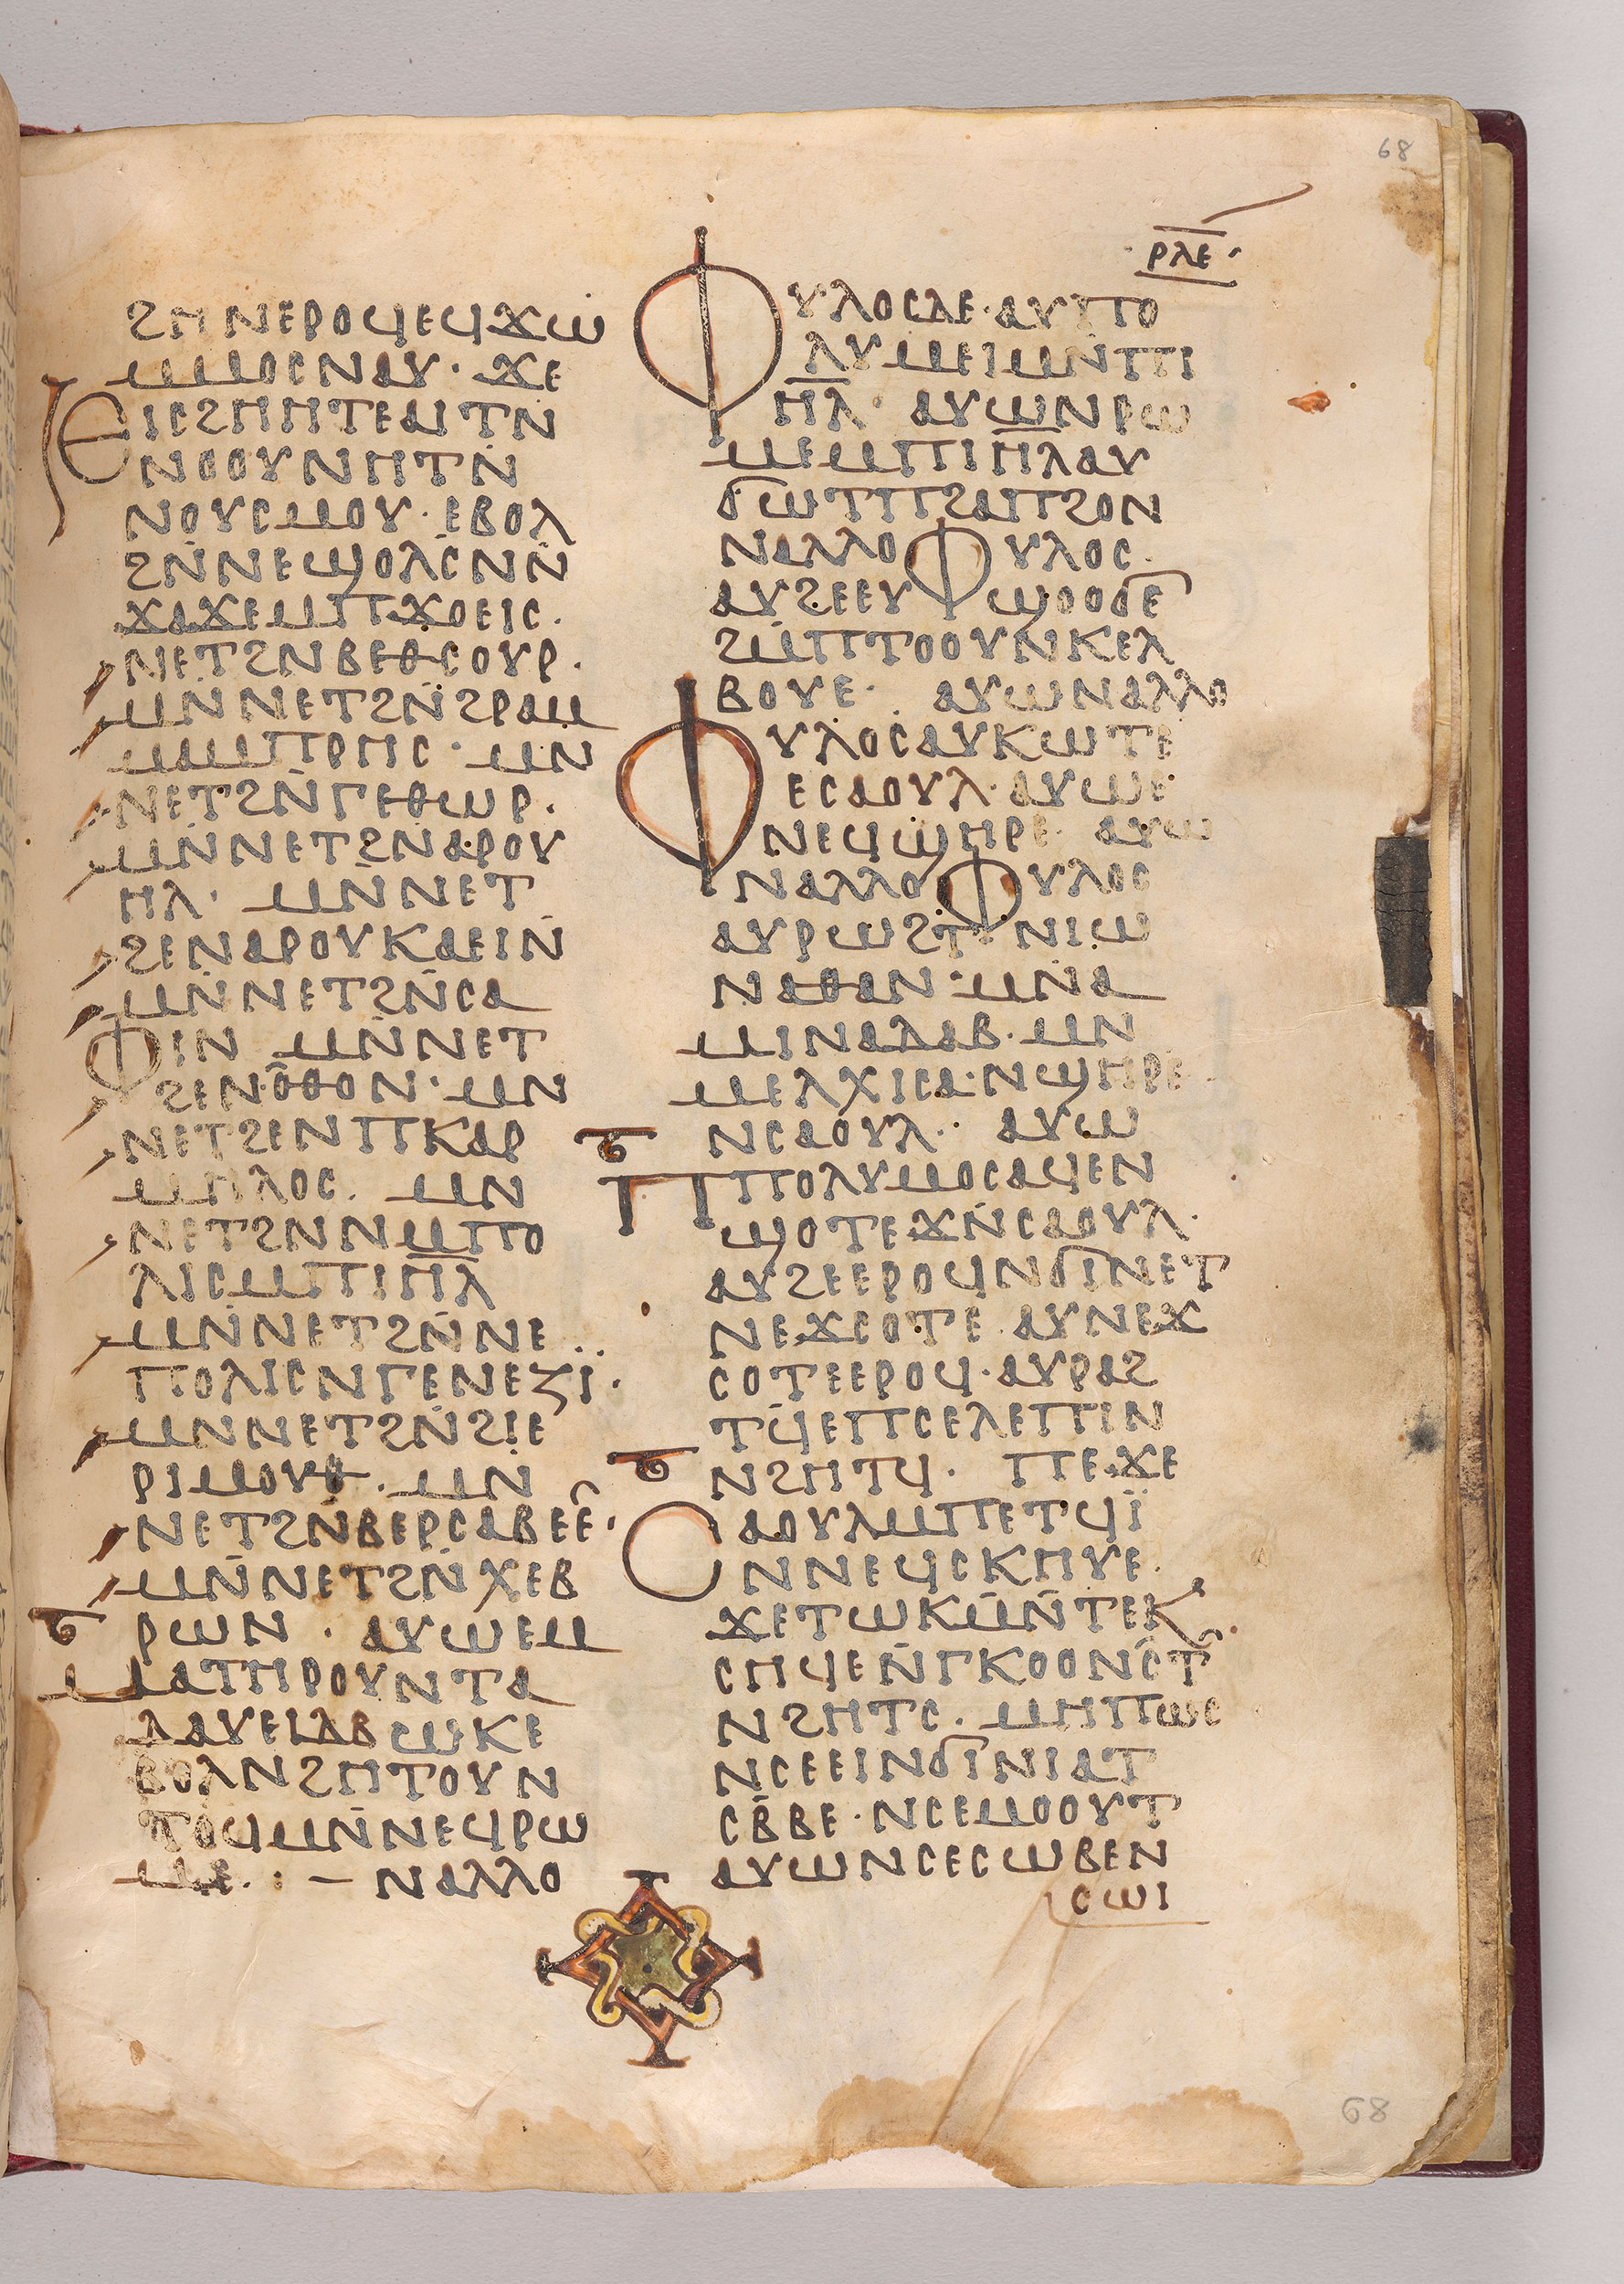 68
ⲣⲗⲉ
ϩⲏⲛⲉⲣⲟϥⲉϥϫⲱ
ⲙⲙⲟⲥⲛⲁⲩ· ϫⲉ
ⲉⲓⲥϩⲏⲏⲧⲉⲁⲓⲧⲛ
ⲛⲟⲟⲩⲛⲏⲧⲛ̄
ⲛⲟⲩⲥⲙⲟⲩ· ⲉⲃⲟⲗ
ϩⲛ̄ⲛⲉϣⲟⲗⲥ̄ⲛⲛ̄
ϫⲁϫⲉⲙⲡϫⲟⲉⲓⲥ.
ⲛⲉⲧϩⲛⲃⲉⲑⲥⲟⲩⲣ.
ⲙⲛ̄ⲛⲉⲧϩⲛ̄ϩⲣⲁⲙ
ⲙⲁⲙⲡⲣⲏⲥ· ⲙⲛ
ⲛⲉⲧϩⲛ̄ⲅⲉⲑⲱⲣ.
ⲙⲛ̄ⲛⲉⲧϩⲛⲁⲣⲟⲩ
ⲏⲗ· ⲙⲛ̄ⲛⲉⲧ
ϩⲉⲛⲁⲣⲟⲩⲕⲁⲉⲓⲛ
ⲙⲛ̄ⲛⲉⲧϩⲛ̄ⲥⲁ
ⲫⲓⲛ ⲙⲛ̄ⲛⲉⲧ
ϩⲉⲛⲟⲑⲟⲛ· ⲙⲛ
ⲛⲉⲧϩⲉⲛⲡⲕⲁⲣ
ⲙⲏⲗⲟⲥ. ⲙⲛ
ⲛⲉⲧϩⲛⲛⲙⲡⲟ
ⲗⲓⲥⲙⲡⲓⲏ̄ⲗ̄
ⲙⲛ̄ⲛⲉⲧϩⲛ̄ⲛⲉ
ⲡⲟⲗⲓⲥⲛⲅⲉⲛⲉⲍⲓ̈.
ⲙⲛⲛⲉⲧϩⲛ̄ϩⲓⲉ
ⲣⲓⲙⲟⲩⲑ. ⲙⲛ
ⲛⲉⲧϩⲛ̄ⲃⲉⲣⲥⲁⲃⲉⲉ·
ⲙⲛ̄ⲛⲉⲧϩⲛ̄ⲭⲉⲃ
ⲣⲱⲛ. ⲁⲩⲱⲉⲙ
ⲙⲁⲧⲏⲣⲟⲩⲛⲧⲁ
ⲇⲁⲩⲉⲓⲇⲃⲱⲕⲉ
ⲃⲟⲗⲛϩⲏⲧⲟⲩⲛ
ⲧⲟϥⲙⲛ̄ⲛⲉϥⲣⲱ
ⲙⲉ. : – ⲛⲁⲗⲗⲟ
ⲫⲩⲗⲟⲥⲇⲉ·ⲁⲩⲡⲟ
ⲗⲩⲙⲉⲓⲙⲛ̄ⲡⲓ
ⲏ̄ⲗ̄· ⲁⲩⲱⲛⲣⲱ
ⲙⲉⲙⲡⲓⲏ̄ⲗ̄ⲁⲩ
ϭⲱⲧⲡϩⲁⲡϩⲟⲛ
ⲛⲁⲗⲗⲟⲫⲩⲗⲟⲥ.
ⲁⲩϩⲉⲉⲩⲫϣⲟⲟϭⲉ
ϩⲙ̄ⲡⲧⲟⲟⲩⲛⲕⲉⲗ
ⲃⲟⲩⲉ· ⲁⲩⲱⲛⲁⲗⲗⲟ
ⲫⲩⲗⲟⲥⲁⲩⲕⲱⲧⲉ
ⲉⲥⲁⲟⲩⲗ·ⲁⲩⲱⲉ
ⲛⲉϥϣⲏⲣⲉ· ⲁⲩⲱ
ⲛⲁⲗⲗⲟⲫⲩⲗⲟⲥ
ⲁⲩⲣⲱϩⲧ ⲛⲓⲱ
ⲛⲁⲑⲁⲛ·ⲙⲛ̄ⲁ
ⲙⲓⲛⲁⲇⲁⲃ·ⲙⲛ
ⲙⲉⲗⲭⲓⲥⲁ·ⲛϣⲏⲣⲉ
ⲛⲥⲁⲟⲩⲗ· ⲁⲩⲱ
ⲡⲡⲟⲗⲩⲙⲟⲥⲁϥⲉⲛ
ϣⲟⲧⲉϫⲛ̄ⲥⲁⲟⲩⲗ.
ⲁⲩϩⲉⲉⲣⲟϥⲛϭⲓⲛⲉⲧ
ⲛⲉϫⲥⲟⲧⲉ ⲁⲩⲛⲉϫ
ⲥⲟⲧⲉⲉⲣⲟϥ·ⲁⲩⲣⲁϩ
ⲧϥ̄ⲉⲡⲥⲉⲗⲉⲡⲓⲛ
ⲛϩⲏⲧϥ. ⲡⲉϫⲉ
ⲥⲁⲟⲩⲗⲙⲡⲉⲧϥⲓ̈
ⲛⲛⲉϥⲥⲕⲏⲩⲉ.
ϫⲉⲧⲱⲕⲙ̄ⲛ̄ⲧⲉⲕ
ⲥⲏϥⲉⲛ̄ⲅⲕⲟⲟⲛⲥ̄ⲧ
ⲛϩⲏⲧⲥ. ⲙⲏⲡⲱⲥ
ⲛⲥⲉⲉⲓⲛϭⲓⲛⲓⲁⲧ
ⲥⲃ̄ⲃⲉ·ⲛⲥⲉⲙⲟⲟⲩⲧ
ⲁⲩⲱⲛⲥⲉⲥⲱⲃⲉⲛ
ⲥⲱⲓ
68